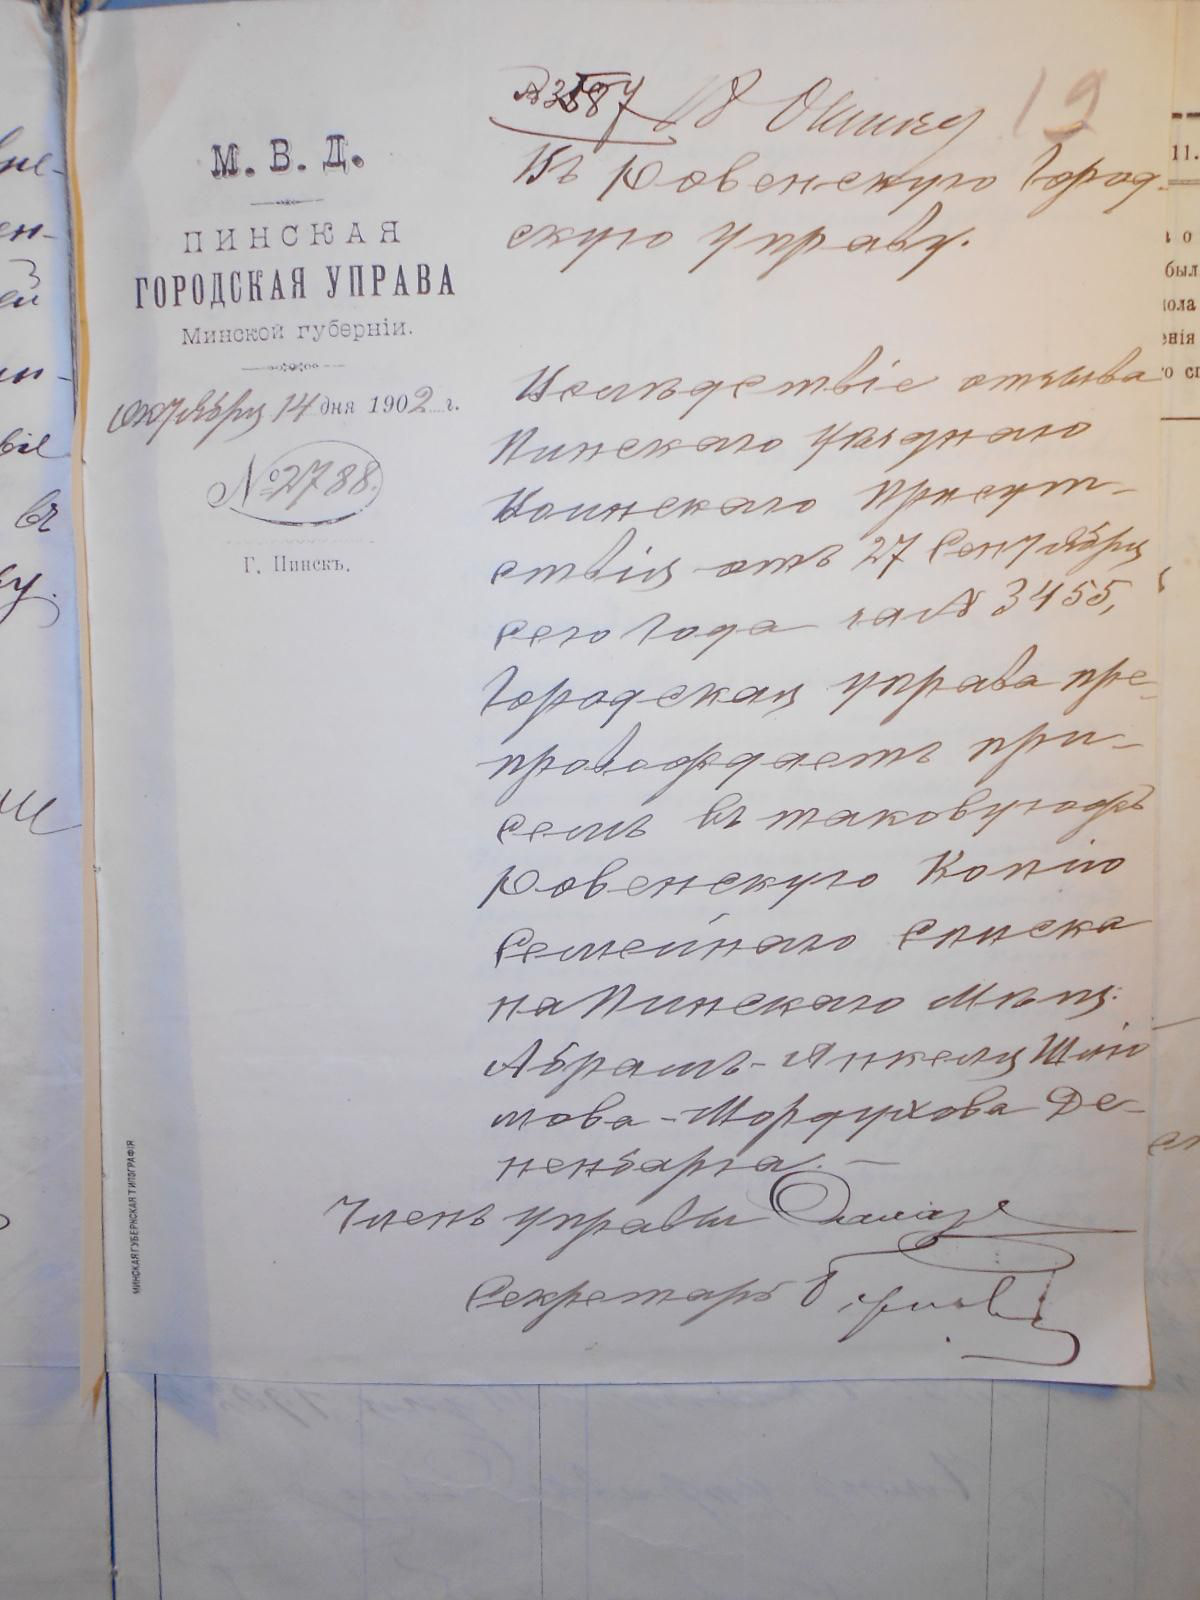 19
М. В. Д.
ПИНСКАЯ
ГОРОДСКАЯ УПРАВА
Минской губерніи.
Октября 14 дня 1902 г.
№ 2788.
Г. Пинскъ.
Въ Ровенскую Город-
скую Управу.
Вслѣдствіе отзыва
Пинскаго Уѣзднаго
Воинскаго Присут-
ствія отъ 27 Сентября
сего года за № 3455,
Городская Управа пре-
провождаетъ при-
семъ въ таковуюжъ
Ровенскую Копію
Семейнаго списка
на Пинскаго Мѣщ.
Абрамъ-Янкеля Шлио
мова-Мордухова Де-
ненбарга. —
Членъ управы
Секретарь
МИНСКАЯ ГУБЕРНСКАЯ ТИПОГРАФІЯ
11.